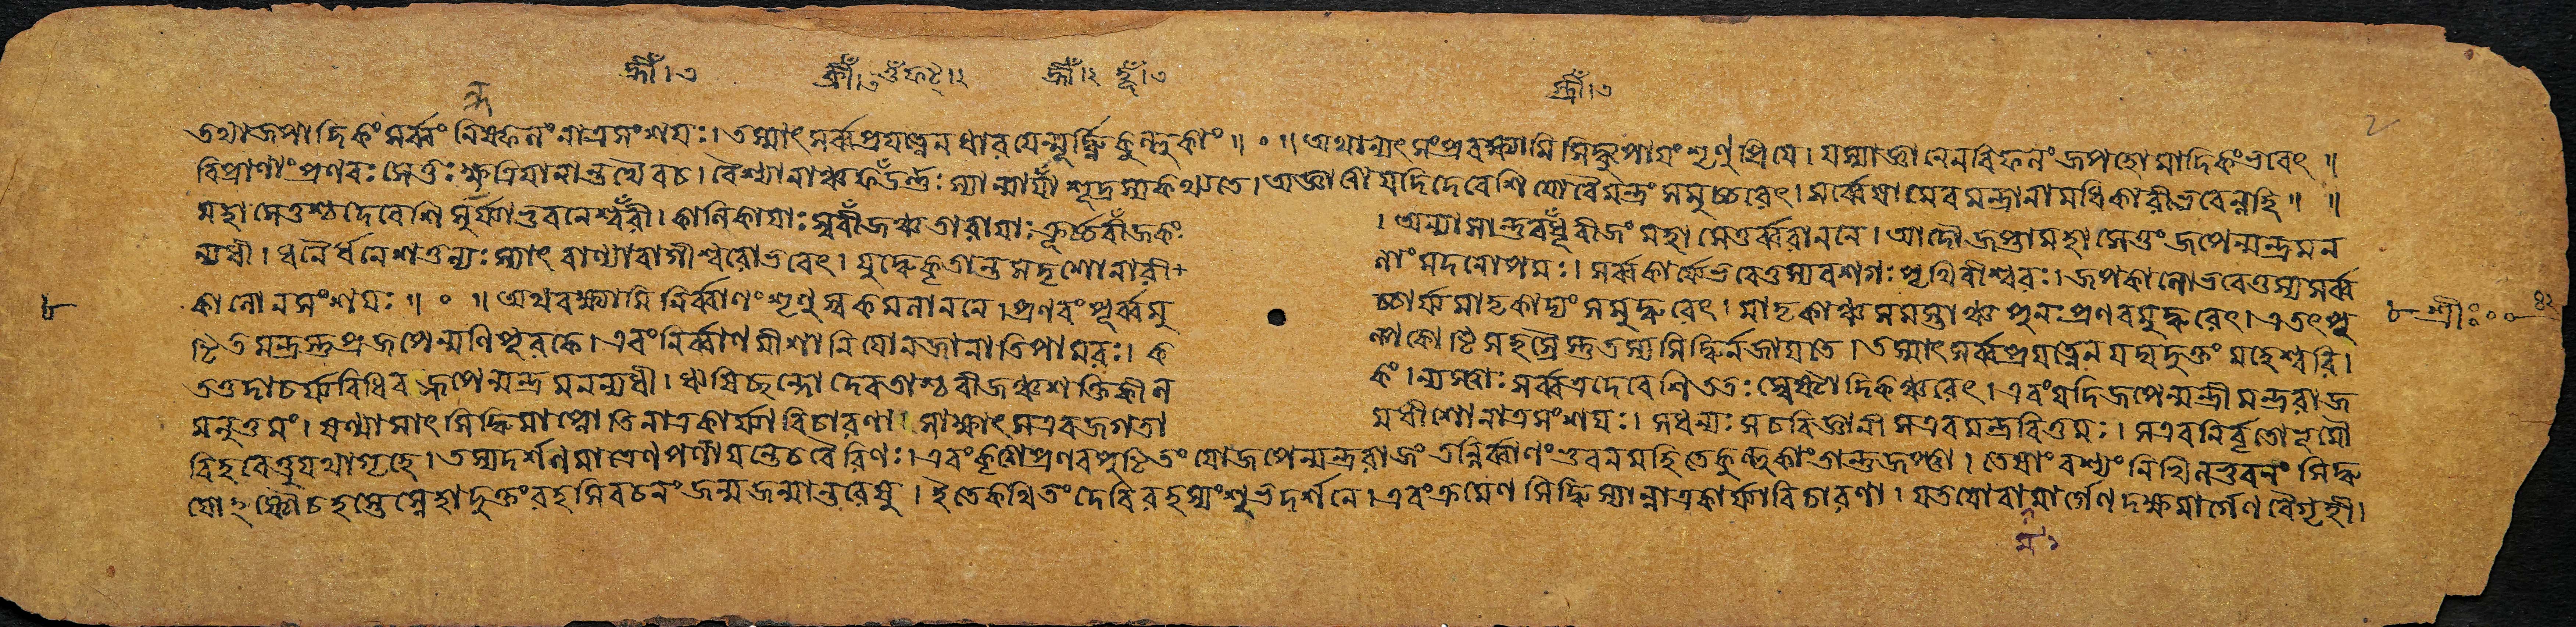 হ্রীঁ।৩ ক্রীঁ।৩ ওঁ ফট্।২ হ্রীঁ।২ হূঁ।৩ স্ত্রীঁ।৩
তথা জপাদিকং সর্ব্বং নিষ্ফলং নাত্র সংশয়ঃ। তস্মাৎ সর্ব্বপ্রযত্নেন ধারয়েন্মূর্দ্ধ্নি কুল্লুকাং॥ ॰॥ অথান্যৎ সংপ্রবক্ষ্যামি সিদ্ধ্যুপায়ং শৃণু প্রিয়ে। যস্যাজ্ঞানেন বিফলং জপহোমাদিকং ভবেৎ॥
বিপ্রাণাং প্রণবঃ সেতুঃ ক্ষত্রিয়ানান্তথৈবচ। বৈশ্যানাঞ্চ ফড়র্ন্তঃ স্যান্মায়াঁ শূদ্রস্য কথ্যতে। অজ্ঞাত্বা যদি দেবেশি যো বৈ মন্ত্রং সমুচ্চরেৎ। সর্ব্বেষামেব মন্ত্রানামধিকারী ভবেন্নহি॥ ॥
মহাসেতুশ্চ দেবেশি সুর্য্যা ভুবনেশ্বরীঁ। কালিকায়াঃ স্ববীজঞ্চ তারায়াঃ কূর্চ্চবীঁজকং । অন্যাসান্তু বধূঁবীজং মহাসেতুর্ব্বরাননে। আদৌ জপ্ত্বা মহাসেতুং জপেন্মন্ত্রমন
ন্যধী। ধনৈর্ধনেশতুল্যঃ স্যাৎ বাণ্যা বাগীশ্বরো ভবেৎ। যুদ্ধে কৃতান্তসদৃশো নারী+ ণাং মদনোপমঃ। সর্ব্বকার্য্যে ভবেত্তস্য বশগঃ পৃথিবীশ্বরঃ। জপকালো ভবেত্তস্য সর্ব্ব
কালো ন সংশয়ঃ॥ ॰ ॥ অথ বক্ষ্যামি নির্ব্বাণং শৃণু স্বকমলাননে। প্রণবং পূর্ব্বমু চ্চার্য্য মাতৃকাদ্যং সমুদ্ধরেৎ। মাতৃকাঞ্চ সমস্তাঞ্চ পুনঃ প্রণবমুদ্ধরেৎ। এতৎ পু
টিতমন্ত্রন্তু প্রজপেন্মণিপূরকে। এবং নির্ব্বাণমীশানি যো ন জানাতি পামরঃ। ক ল্পকোটিসহস্রৈস্তু তস্য সিদ্ধির্ন জায়তে। তস্মাৎ সর্ব্বপ্রযত্নেন যদ্যদুক্তং মহেশ্বরি।
তত্তদাচর্য্য বিধিবজ্জপেন্মন্ত্রমনন্যধী। ঋষিচ্ছন্দো দেবতাশ্চ বীজঞ্চ শক্তিকীল কং। ন্যস্তাঃ সর্ব্বত্র দেবেশি ততঃ স্বেষ্টাদিকঞ্চরেৎ। এবং যদি জপেন্মন্ত্রী মন্ত্ররাজ
মনুত্তমং। ষণ্মাসাৎ সিদ্ধিমাপ্নোতি নাত্র কার্য্যা বিচারণা। সাক্ষাৎ স এব জগতা মধীশো নাত্র সংশয়ঃ। স ধন্যঃ স চ বিজ্ঞানী স এব মন্ত্রবিত্তমঃ। স এব নির্বৃতোঽসৌ
বিহরেত্তু যথা গৃহে। তস্য দর্শনমাত্রেণ পলায়ন্তে চ বৈরিণঃ। এবং কৃত্বা প্রণবপুটিতং যো জপেন্মন্ত্ররাজং তন্নির্ব্বাণং ভুবনমহিতে কুল্লুকাং তান্তু জপ্ত্বা। তেষাং বশ্যং নিখিলভুবনং সিদ্ধ
হস্তে স্নেহাদুক্তং রহসি বচনং জন্মজন্মান্তরেষু। ইতে কথিতং দেবি রহস্যং শুভদর্শনে। এবং ক্রমেণ সিদ্ধি স্যান্নাত্র কার্য্যা বিচারণা। দক্ষমার্গেণ বৈ গৃহী।
৮
৮ শ্রীঃ